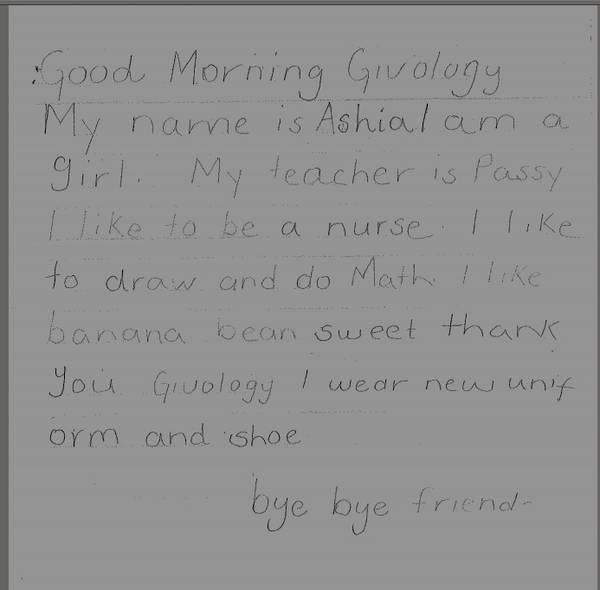 Good Morning Givology
My name is Ashia I am a
girl. My teacher is Passy
I like to be a nurse. I like
to draw and do Math. I like
banana bean sweet thank
you Givology I wear new unif
orm and shoe
bye bye friend-